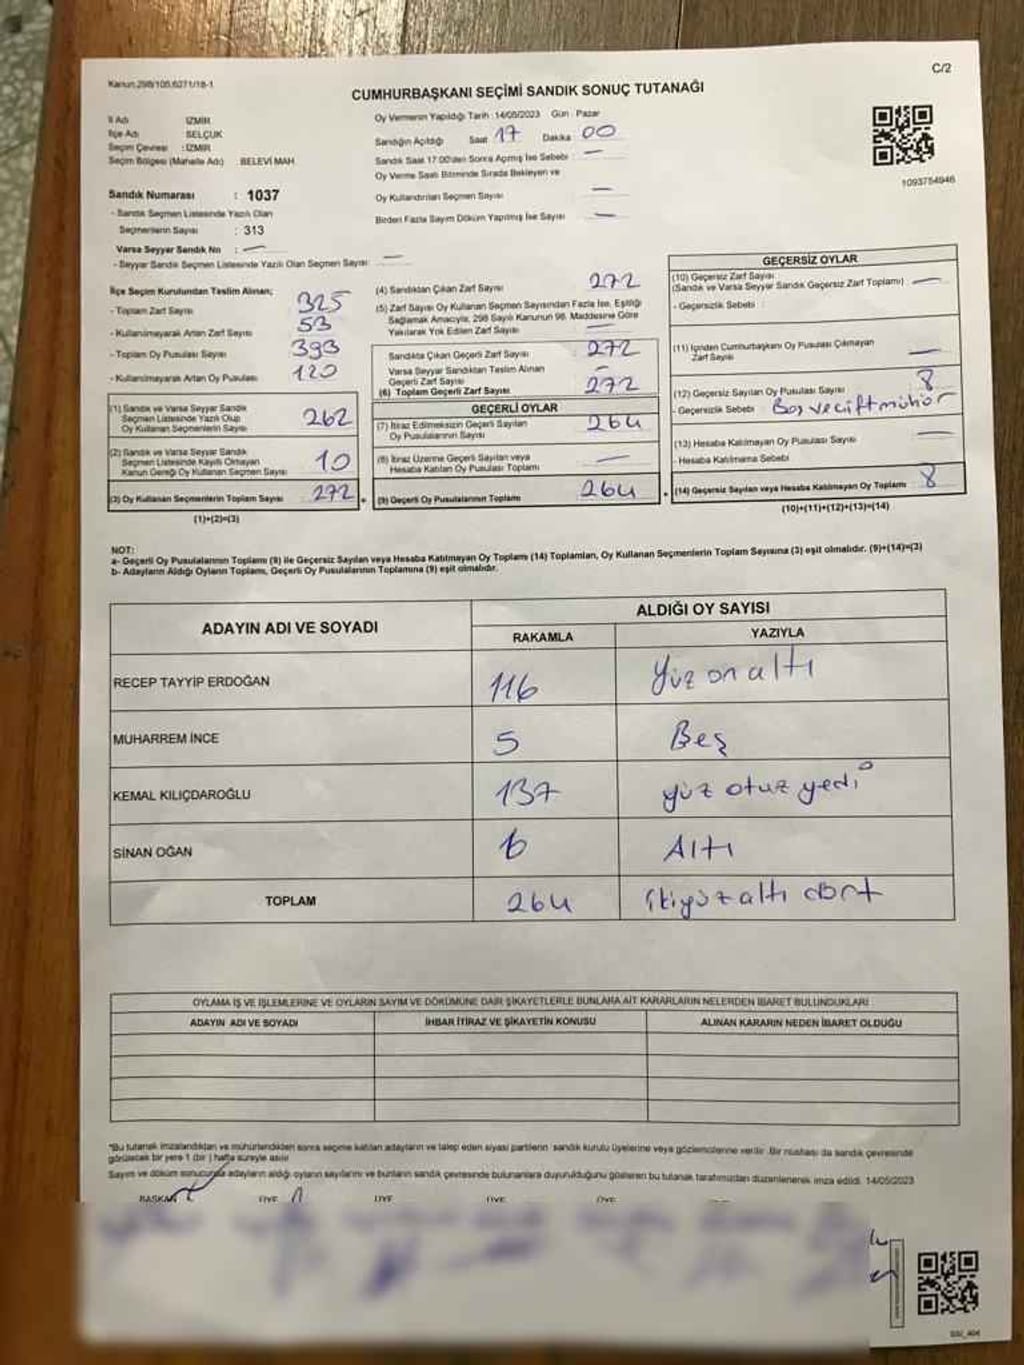 Kanun:298/105,6271/18-1
C/2
CUMHURBAŞKANI SEÇİMİ SANDIK SONUÇ TUTANAĞI
İl Adı : İZMİR
İlçe Adı : SELÇUK
Seçim Çevresi : İZMİR
Seçim Bölgesi (Mahalle Adı) : BELEVİ MAH
Oy Vermenin Yapıldığı Tarih :14/05/2023 Gün : Pazar
Sandığın Açıldığı Saat 17 Dakika 00
Sandık Saat 17.00'den Sonra Açmış İse Sebebi : —
Oy Verme Saati Bitiminde Sırada Bekleyen ve
Oy Kullandırılan Seçmen Sayısı —
Birden Fazla Sayım Döküm Yapılmış İse Sayısı —
1093754946
Sandık Numarası : 1037
- Sandık Seçmen Listesinde Yazılı Olan
Seçmenlerin Sayısı : 313
Varsa Seyyar Sandık No : —
- Seyyar Sandık Seçmen Listesinde Yazılı Olan Seçmen Sayısı: —
İlçe Seçim Kurulundan Teslim Alınan;
- Toplam Zarf Sayısı 325
- Kullanılmayarak Artan Zarf Sayısı 53
- Toplam Oy Pusulası Sayısı 393
- Kullanılmayarak Artan Oy Pusulası 120
(1) Sandık ve Varsa Seyyar Sandık
Seçmen Listesinde Yazılı Olup
Oy Kullanan Seçmenlerin Sayısı 262
(2) Sandık ve Varsa Seyyar Sandık
Seçmen Listesinde Kayıtlı Olmayan
Kanun Gereği Oy Kullanan Seçmen Sayısı 10
(3) Oy Kullanan Seçmenlerin Toplam Sayısı 272
(1)+(2)=(3)
(4) Sandıktan Çıkan Zarf Sayısı 272
(5) Zarf Sayısı Oy Kullanan Seçmen Sayısından Fazla İse, Eşitliği
Sağlamak Amacıyla, 298 Sayılı Kanunun 98. Maddesine Göre
Yakılarak Yok Edilen Zarf Sayısı —
Sandıkta Çıkan Geçerli Zarf Sayısı : 272
Varsa Seyyar Sandıktan Teslim Alınan
Geçerli Zarf Sayısı : —
(6) Toplam Geçerli Zarf Sayısı : 272
GEÇERLİ OYLAR
(7) İtiraz Edilmeksizin Geçerli Sayılan
Oy Pusulalarının Sayısı 264
(8) İtiraz Üzerine Geçerli Sayılan veya
Hesaba Katılan Oy Pusulası Toplamı —
(9) Geçerli Oy Pusulalarının Toplamı 264
GEÇERSİZ OYLAR
(10) Geçersiz Zarf Sayısı
(Sandık ve Varsa Seyyar Sandık Geçersiz Zarf Toplamı) : —
- Geçersizlik Sebebi :
(11) İçinden Cumhurbaşkanı Oy Pusulası Çıkmayan
Zarf Sayısı —
(12) Geçersiz Sayılan Oy Pusulası Sayısı : 8
- Geçersizlik Sebebi Boş ve çift mühür
(13) Hesaba Katılmayan Oy Pusulası Sayısı : —
- Hesaba Katılmama Sebebi
(14) Geçersiz Sayılan veya Hesaba Katılmayan Oy Toplamı : 8
(10)+(11)+(12)+(13)=(14)
NOT:
a- Geçerli Oy Pusulalarının Toplamı (9) ile Geçersiz Sayılan veya Hesaba Katılmayan Oy Toplamı (14) Toplamları, Oy Kullanan Seçmenlerin Toplam Sayısına (3) eşit olmalıdır. (9)+(14)=(3)
b- Adayların Aldığı Oyların Toplamı, Geçerli Oy Pusulalarının Toplamına (9) eşit olmalıdır.
ADAYIN ADI VE SOYADI
ALDIĞI OY SAYISI
RAKAMLA YAZIYLA
RECEP TAYYİP ERDOĞAN 116 Yüz on altı
MUHARREM İNCE 5 Beş
KEMAL KILIÇDAROĞLU 137 yüz otuz yedi
SİNAN OĞAN 6 Altı
TOPLAM 264 ikiyüz altı dört
OYLAMA İŞ VE İŞLEMLERİNE VE OYLARIN SAYIM VE DÖKÜMÜNE DAİR ŞİKAYETLERLE BUNLARA AİT KARARLARIN NELERDEN İBARET BULUNDUKLARI
ADAYIN ADI VE SOYADI İHBAR İTİRAZ VE ŞİKAYETİN KONUSU ALINAN KARARIN NEDEN İBARET OLDUĞU
*Bu tutanak imzalandıktan ve mühürlendikten sonra seçime katılan adayların ve talep eden siyasi partilerin sandık kurulu üyelerine veya gözlemcilerine verilir. Bir nüshası da sandık çevresinde
görülecek bir yere 1 (bir ) hafta süreyle asılır.
Sayım ve döküm sonucunda adayların aldığı oyların sayılarını ve bunların sandık çevresinde bulunanlara duyurulduğunu gösteren bu tutanak tarafımızdan düzenlenerek imza edildi. 14/05/2023
BAŞKAN ÜYE ÜYE ÜYE ÜYE